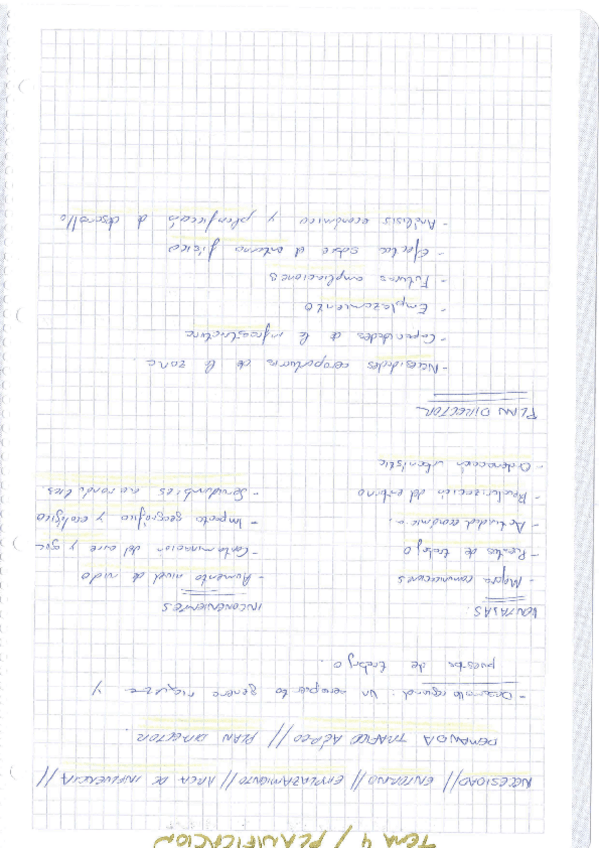 TEMA 4 / PLANIFICACION
NECESIDAD // ENTORNO // EMPLAZAMIENTO // AREA DE INFLUENCIA //
DEMANDA TRAFICO AÉREO // PLAN DIRECTOR.
- Desarrollo regional: un aeropuerto genera riqueza y
puestos de trabajo.
VENTAJAS
- Mejora comunicaciones
- Puestos de trabajo
- Actividad económica.
- Revalorización del entorno
- Ordenacion urbanistica
INCONVENIENTES
- Aumento nivel de ruido
- Contaminación del aire y
- Impacto geográfico y ecológico
- Servidumbres aeronáuticas
PLAN DIRECTOR
- Necesidades aeroportuarias de la zona.
- Capacidades de la infraestructura
- Emplazamiento
- Futuras ampliaciones
- Efectos sobre el entorno físico
- Análisis económico y planificación d desarrollo